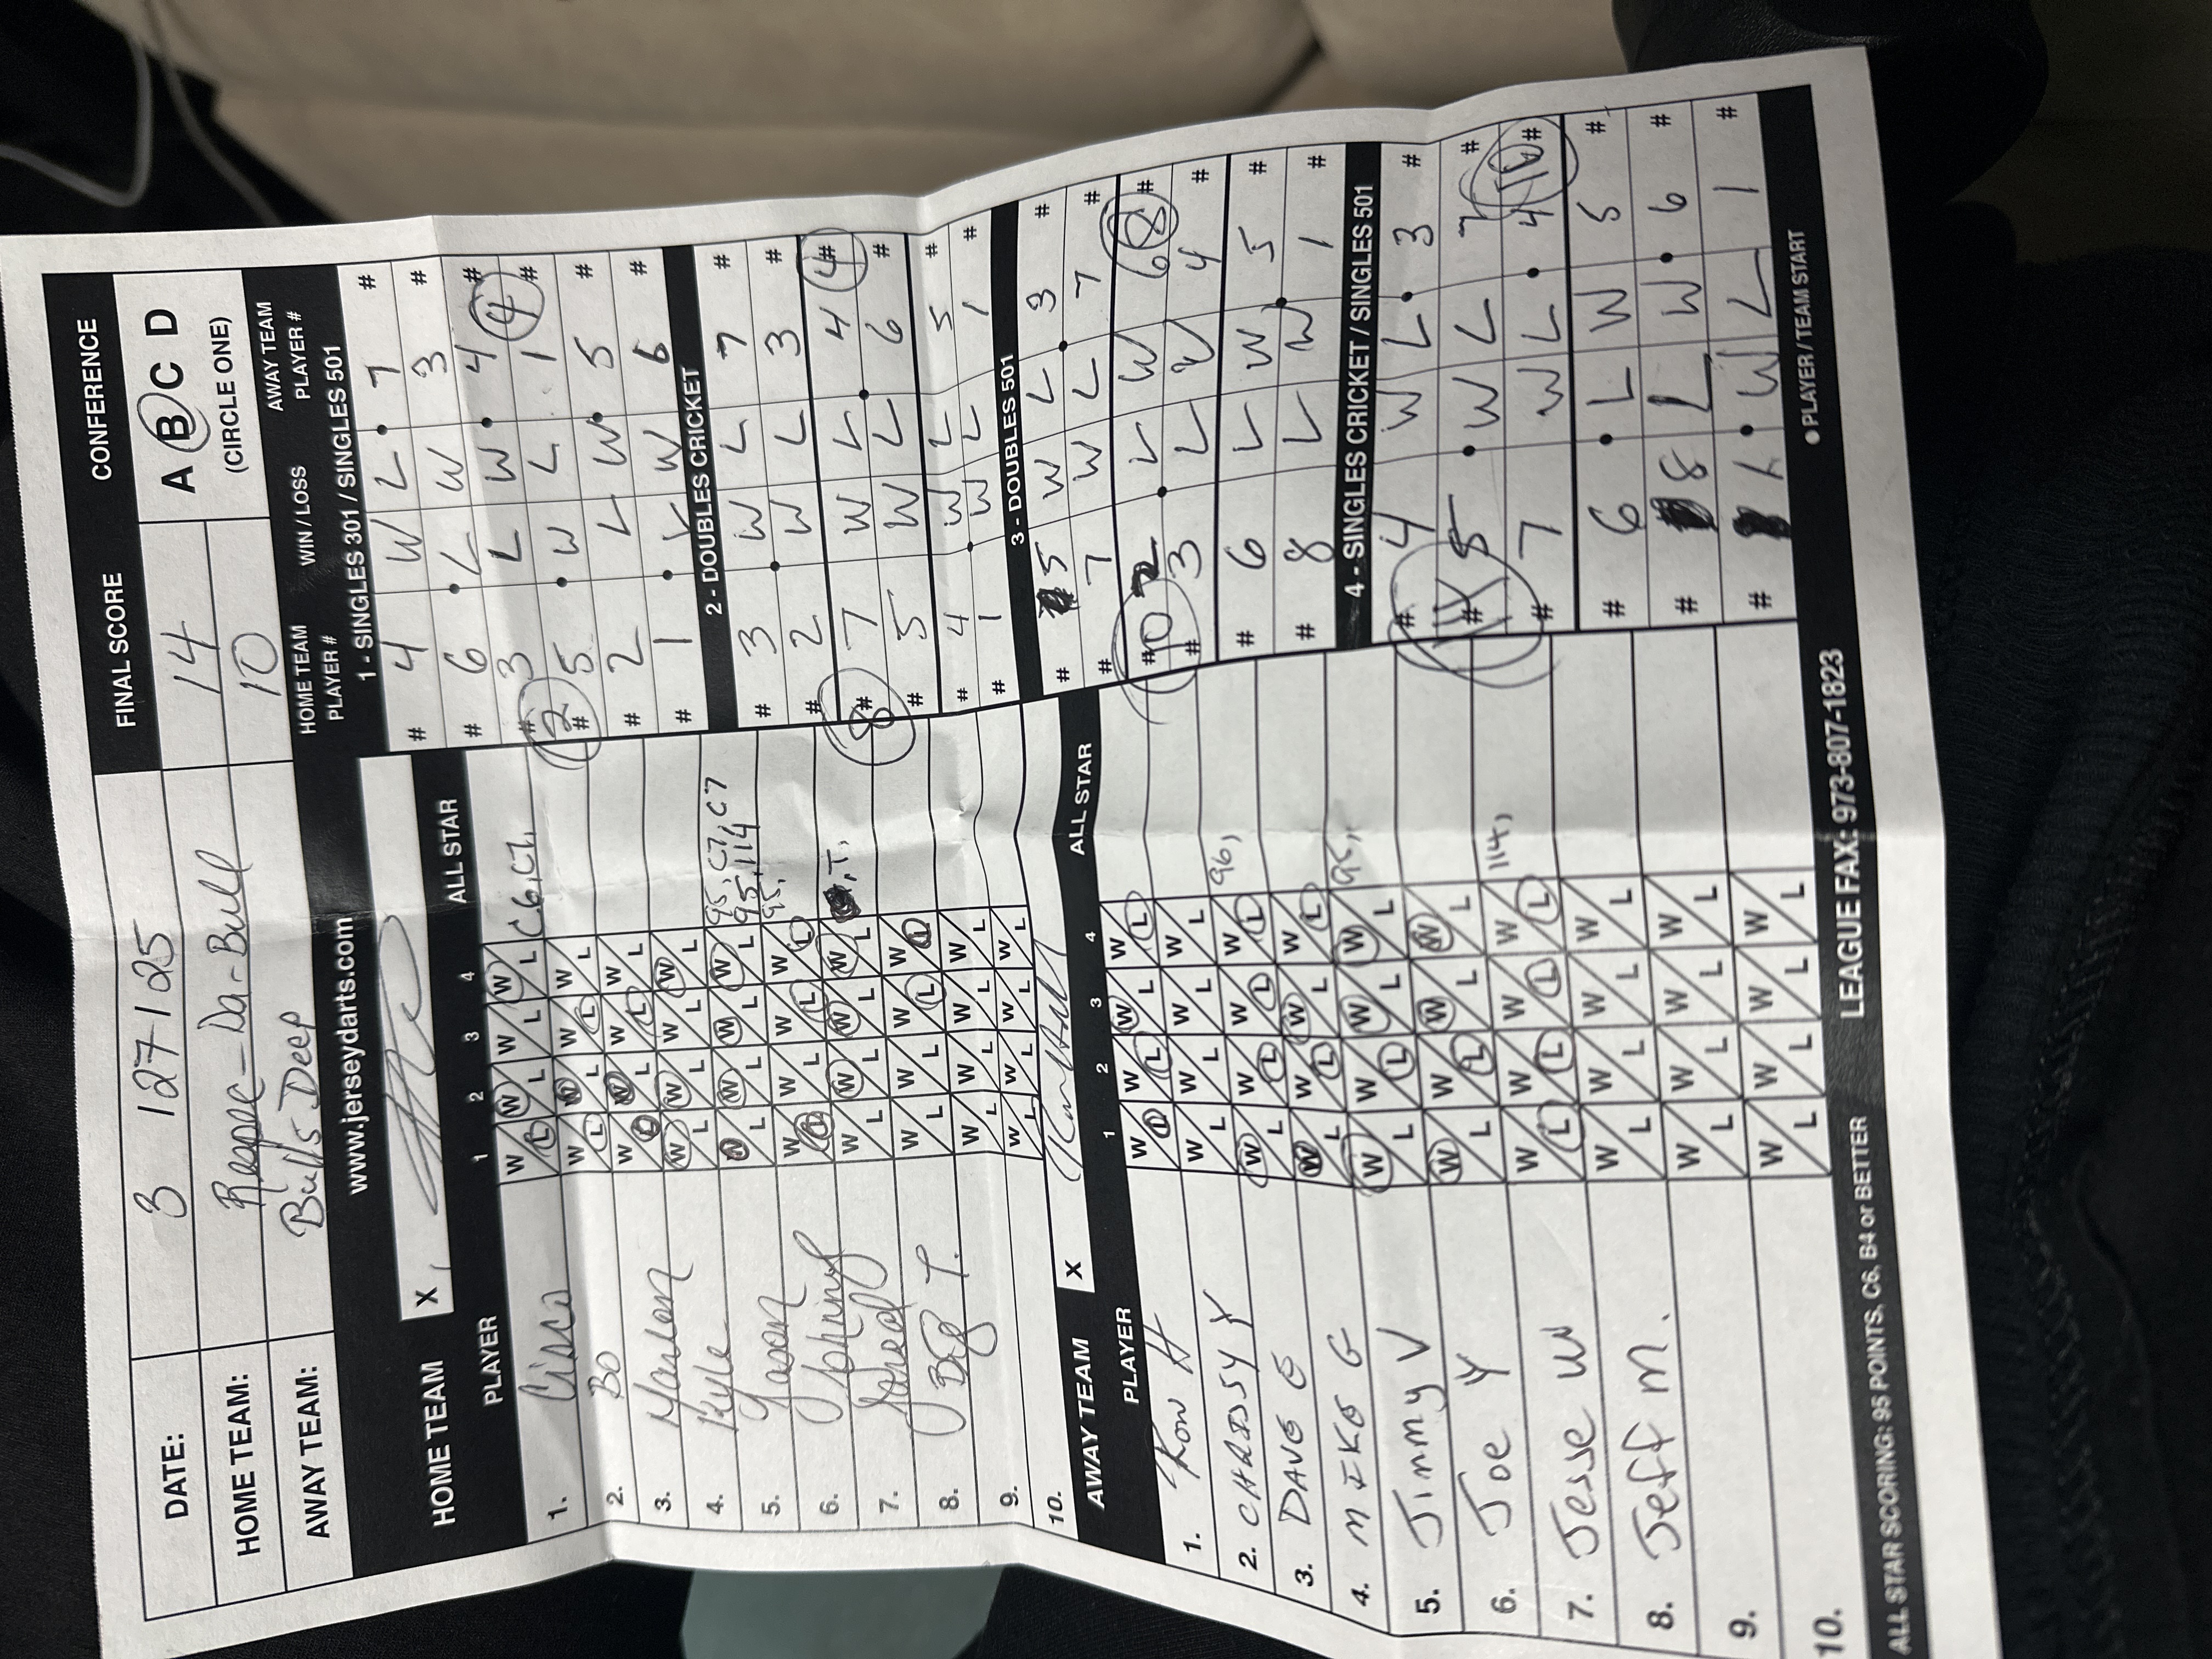 DATE: 3 127 125 FINAL SCORE CONFERENCE
HOME TEAM: Respec-Da-Bull 14 A B C D
AWAY TEAM: Bulls Deep 10 (CIRCLE ONE)
www.jerseydarts.com
HOME TEAM X
PLAYER 1 2 3 4 ALL STAR
1. Cisco W L W L W L W L C6, C7,
2. Bo W L W L W L W L
3. W L W L W L W L
4. Kyle W L W L W L W L
5. Jason W L W L W L W L 95, C7, C7 95, 114 95,
6. Johnny W L W L W L W L
7. Jared W L W L W L W L T,
8. Big T. W L W L W L W L
9. W L W L W L W L
10. W L W L W L W L
AWAY TEAM X
PLAYER 1 2 3 4 ALL STAR
1. Ron H W L W L W L W L
2. CHRISSY Y W L W L W L W L
3. DAVE G W L W L W L W L 96,
4. MIKE G W L W L W L W L
5. Jimmy V W L W L W L W L 95,
6. Joe Y W L W L W L W L
7. Jesse W W L W L W L W L 114,
8. Jeff M. W L W L W L W L
9. W L W L W L W L
10. W L W L W L W L
ALL STAR SCORING: 95 POINTS, C6, B4 or BETTER LEAGUE FAX: 973-807-1823
HOME TEAM PLAYER # WIN / LOSS AWAY TEAM PLAYER #
1 - SINGLES 301 / SINGLES 501
# 4 W L 7 #
# 6 L W 3 #
# 3 L W 4 #
2 4
# 5 W L 1 #
# 2 L W 5 #
# 1 L W 6 #
2 - DOUBLES CRICKET
# 3 W L 7 #
# 2 W L 3 #
8 4
# 7 W L 4 #
# 5 W L 6 #
# 4 W L 5 #
# 1 W L 1 #
3 - DOUBLES 501
# 5 W L 3 #
# 7 W L 7 #
10 8
# 2 L W 6 #
# 3 L W 4 #
# 6 L W 5 #
# 8 L W 1 #
4 - SINGLES CRICKET / SINGLES 501
# 4 W L 3 #
# 5 W L 7 #
# 7 W L 4 #
10
# 6 L W 5 #
# 8 L W 6 #
# 1 W L 1 #
● PLAYER / TEAM START